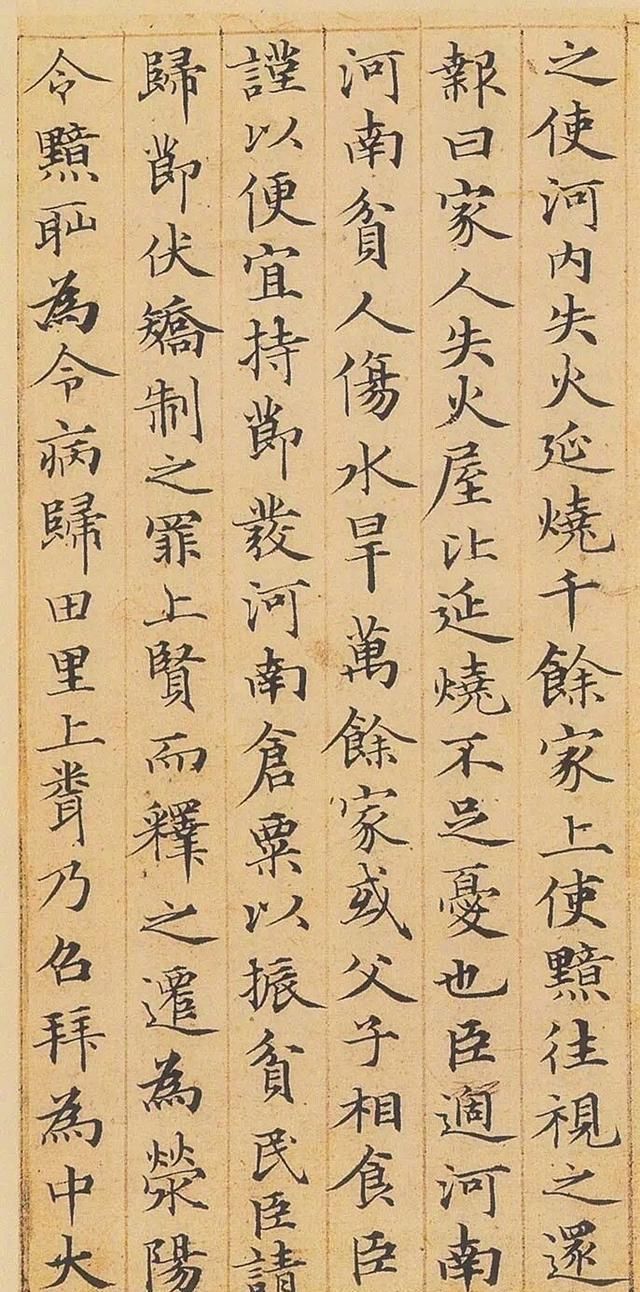 之使河内失火延燒千餘家上使黯往視之還
報曰家人失火屋比延燒不足憂也臣過河南
河南貧人傷水旱萬餘家或父子相食臣
謹以便宜持節發河南倉粟以振貧民臣請
歸節伏矯制之罪上賢而釋之遷為滎陽
令黯恥為令病歸田里上聞乃召拜為中大